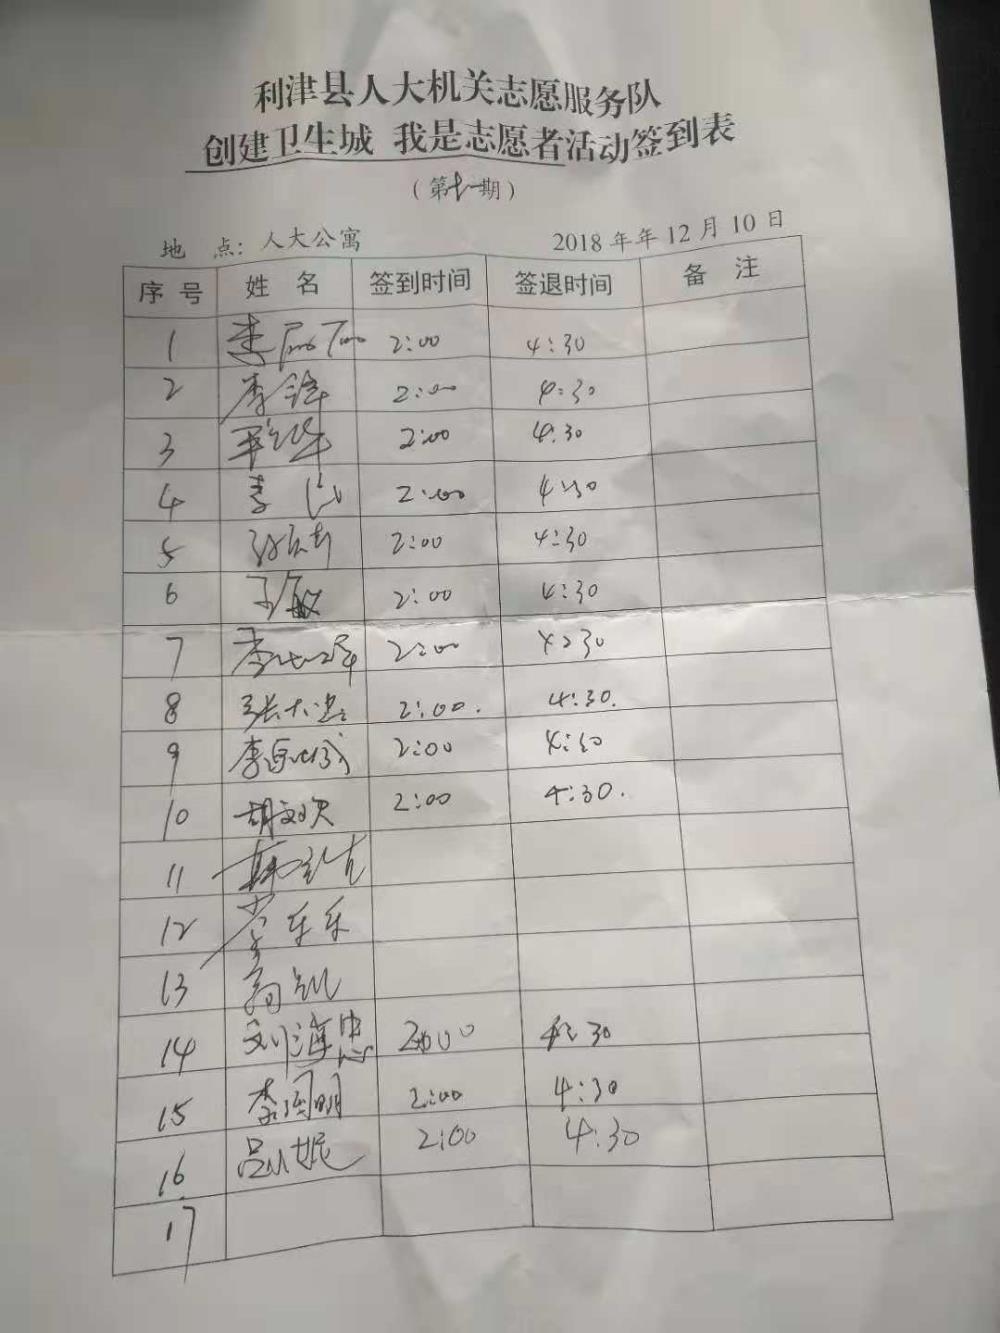 利津县人大机关志愿服务队
创建卫生城 我是志愿者活动签到表
（第十一期）
地 点：人大公寓 2018年年12月10日
序 号 姓 名 签到时间 签退时间 备 注
1 李 2:00 4:30
2 李锋 2:00 4:30
3 2:00 4:30
4 李 2:00 4:30
5 2:00 4:30
6 于敏 2:00 4:30
7 李 2:00 4:30
8 张大忠 2:00. 4:30.
9 李 2:00 4:30
10 胡文欢 2:00 4:30.
11
12 李乐乐
13
14 刘海忠 2:00 4:30
15 李国明 2:00 4:30
16 吕妮 2:00 4:30
17